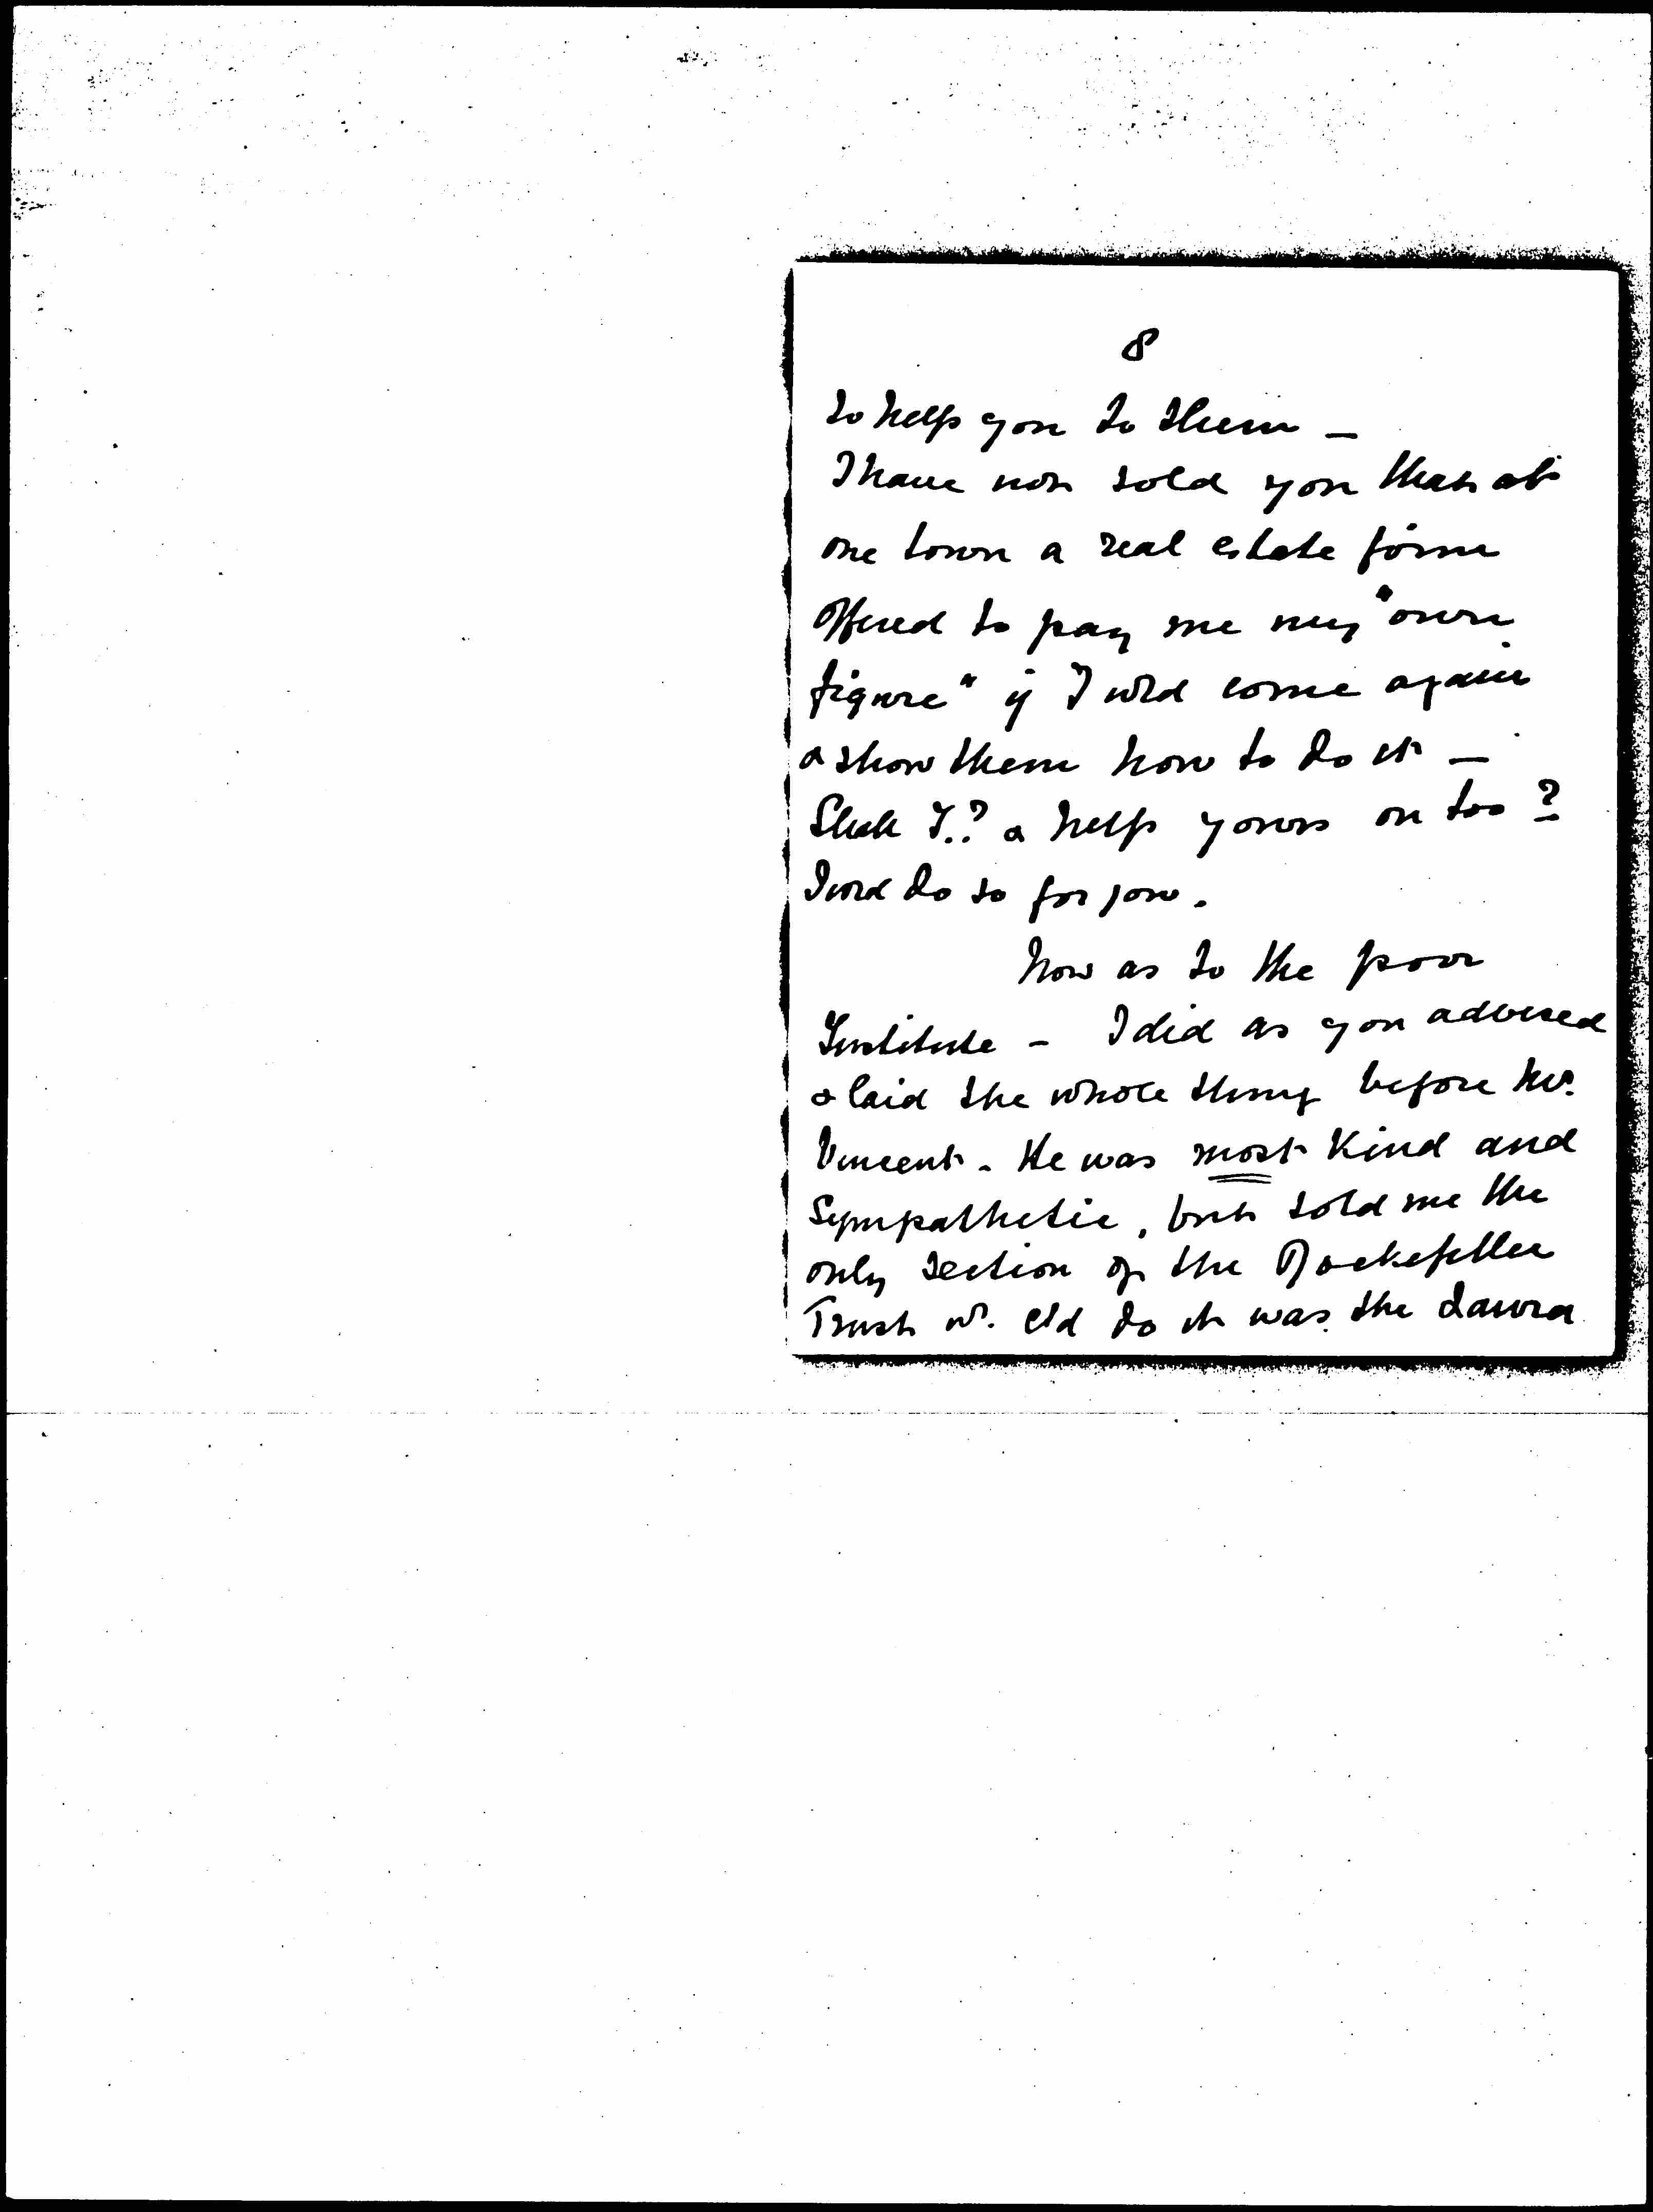 8
to help you to them —
I have not told you that at
one town a real estate firm
offered to pay me my "own
figure" if I wld come again
& show them how to do it —
Shall I.? & help yours on too?
I wld do so for you.
Now as to the poor
Institute - I did as you advised
& laid the whole thing before Mr.
Vincent. He was most kind and
Sympathetic, but told me the
only section of the Rockefeller
Trust wh. cld do it was the Laura